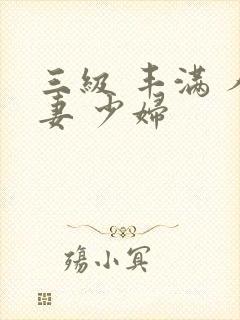 三級 丰滿 人
妻 少婦
殤小冥